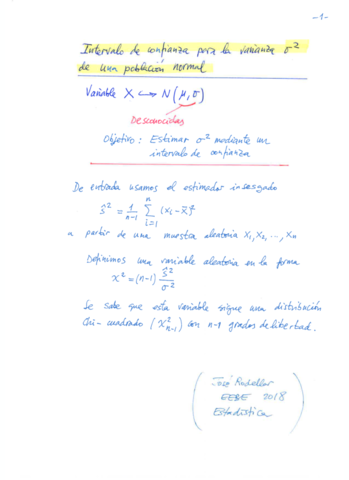 -1-
Intervalo de confianza para la varianza σ²
de una población normal
Variable X ↪ N(μ, σ)
Desconocidas
Objetivo: Estimar σ² mediante un
intervalo de confianza
De entrada usamos el estimador insesgado
ŝ² = 1/(n-1) Σ_{i=1}^{n} (xᵢ - x̄)²
a partir de una muestra aleatoria X₁, X₂, ..., Xn
Definimos una variable aleatoria en la forma
χ² = (n-1) ŝ²/σ²
Se sabe que esta variable sigue una distribución
Chi-cuadrado (χ²ₙ₋₁) con n-1 grados de libertad.
José Rodellar
EEBE 2018
Estadística